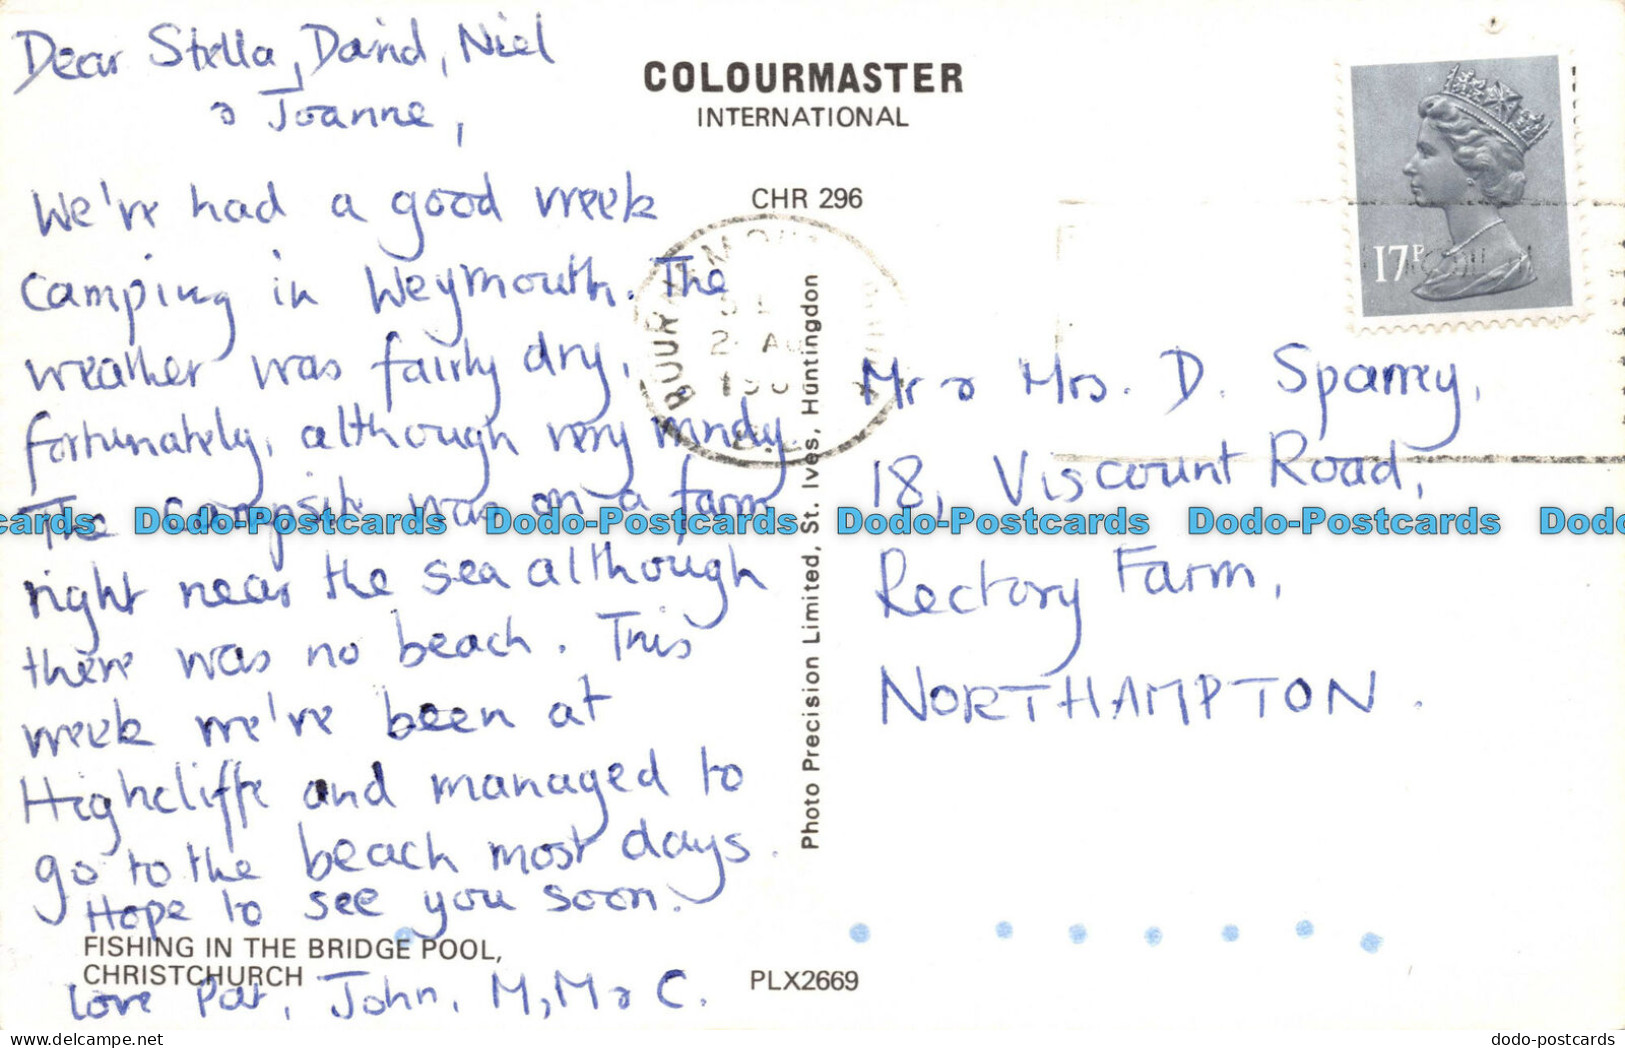 Dear Stella, David, Niel
& Joanne,
We've had a good week
camping in Weymouth. The
weather was fairly dry,
fortunately, although very windy.
The campsite was on a farm
right near the sea although
there was no beach. This
week we've been at
Highcliffe and managed to
go to the beach most days.
Hope to see you soon.
love Pat, John, M, M & C.
FISHING IN THE BRIDGE POOL,
CHRISTCHURCH
COLOURMASTER
INTERNATIONAL
CHR 296
Photo Precision Limited, St. Ives, Huntingdon
PLX2669
17P
Mr & Mrs. D. Sparrey,
18, Viscount Road,
Rectory Farm,
NORTHAMPTON.
cards Dodo-Postcards Dodo-Postcards Dodo-Postcards Dodo-Postcards Dodo
dodo-postcards